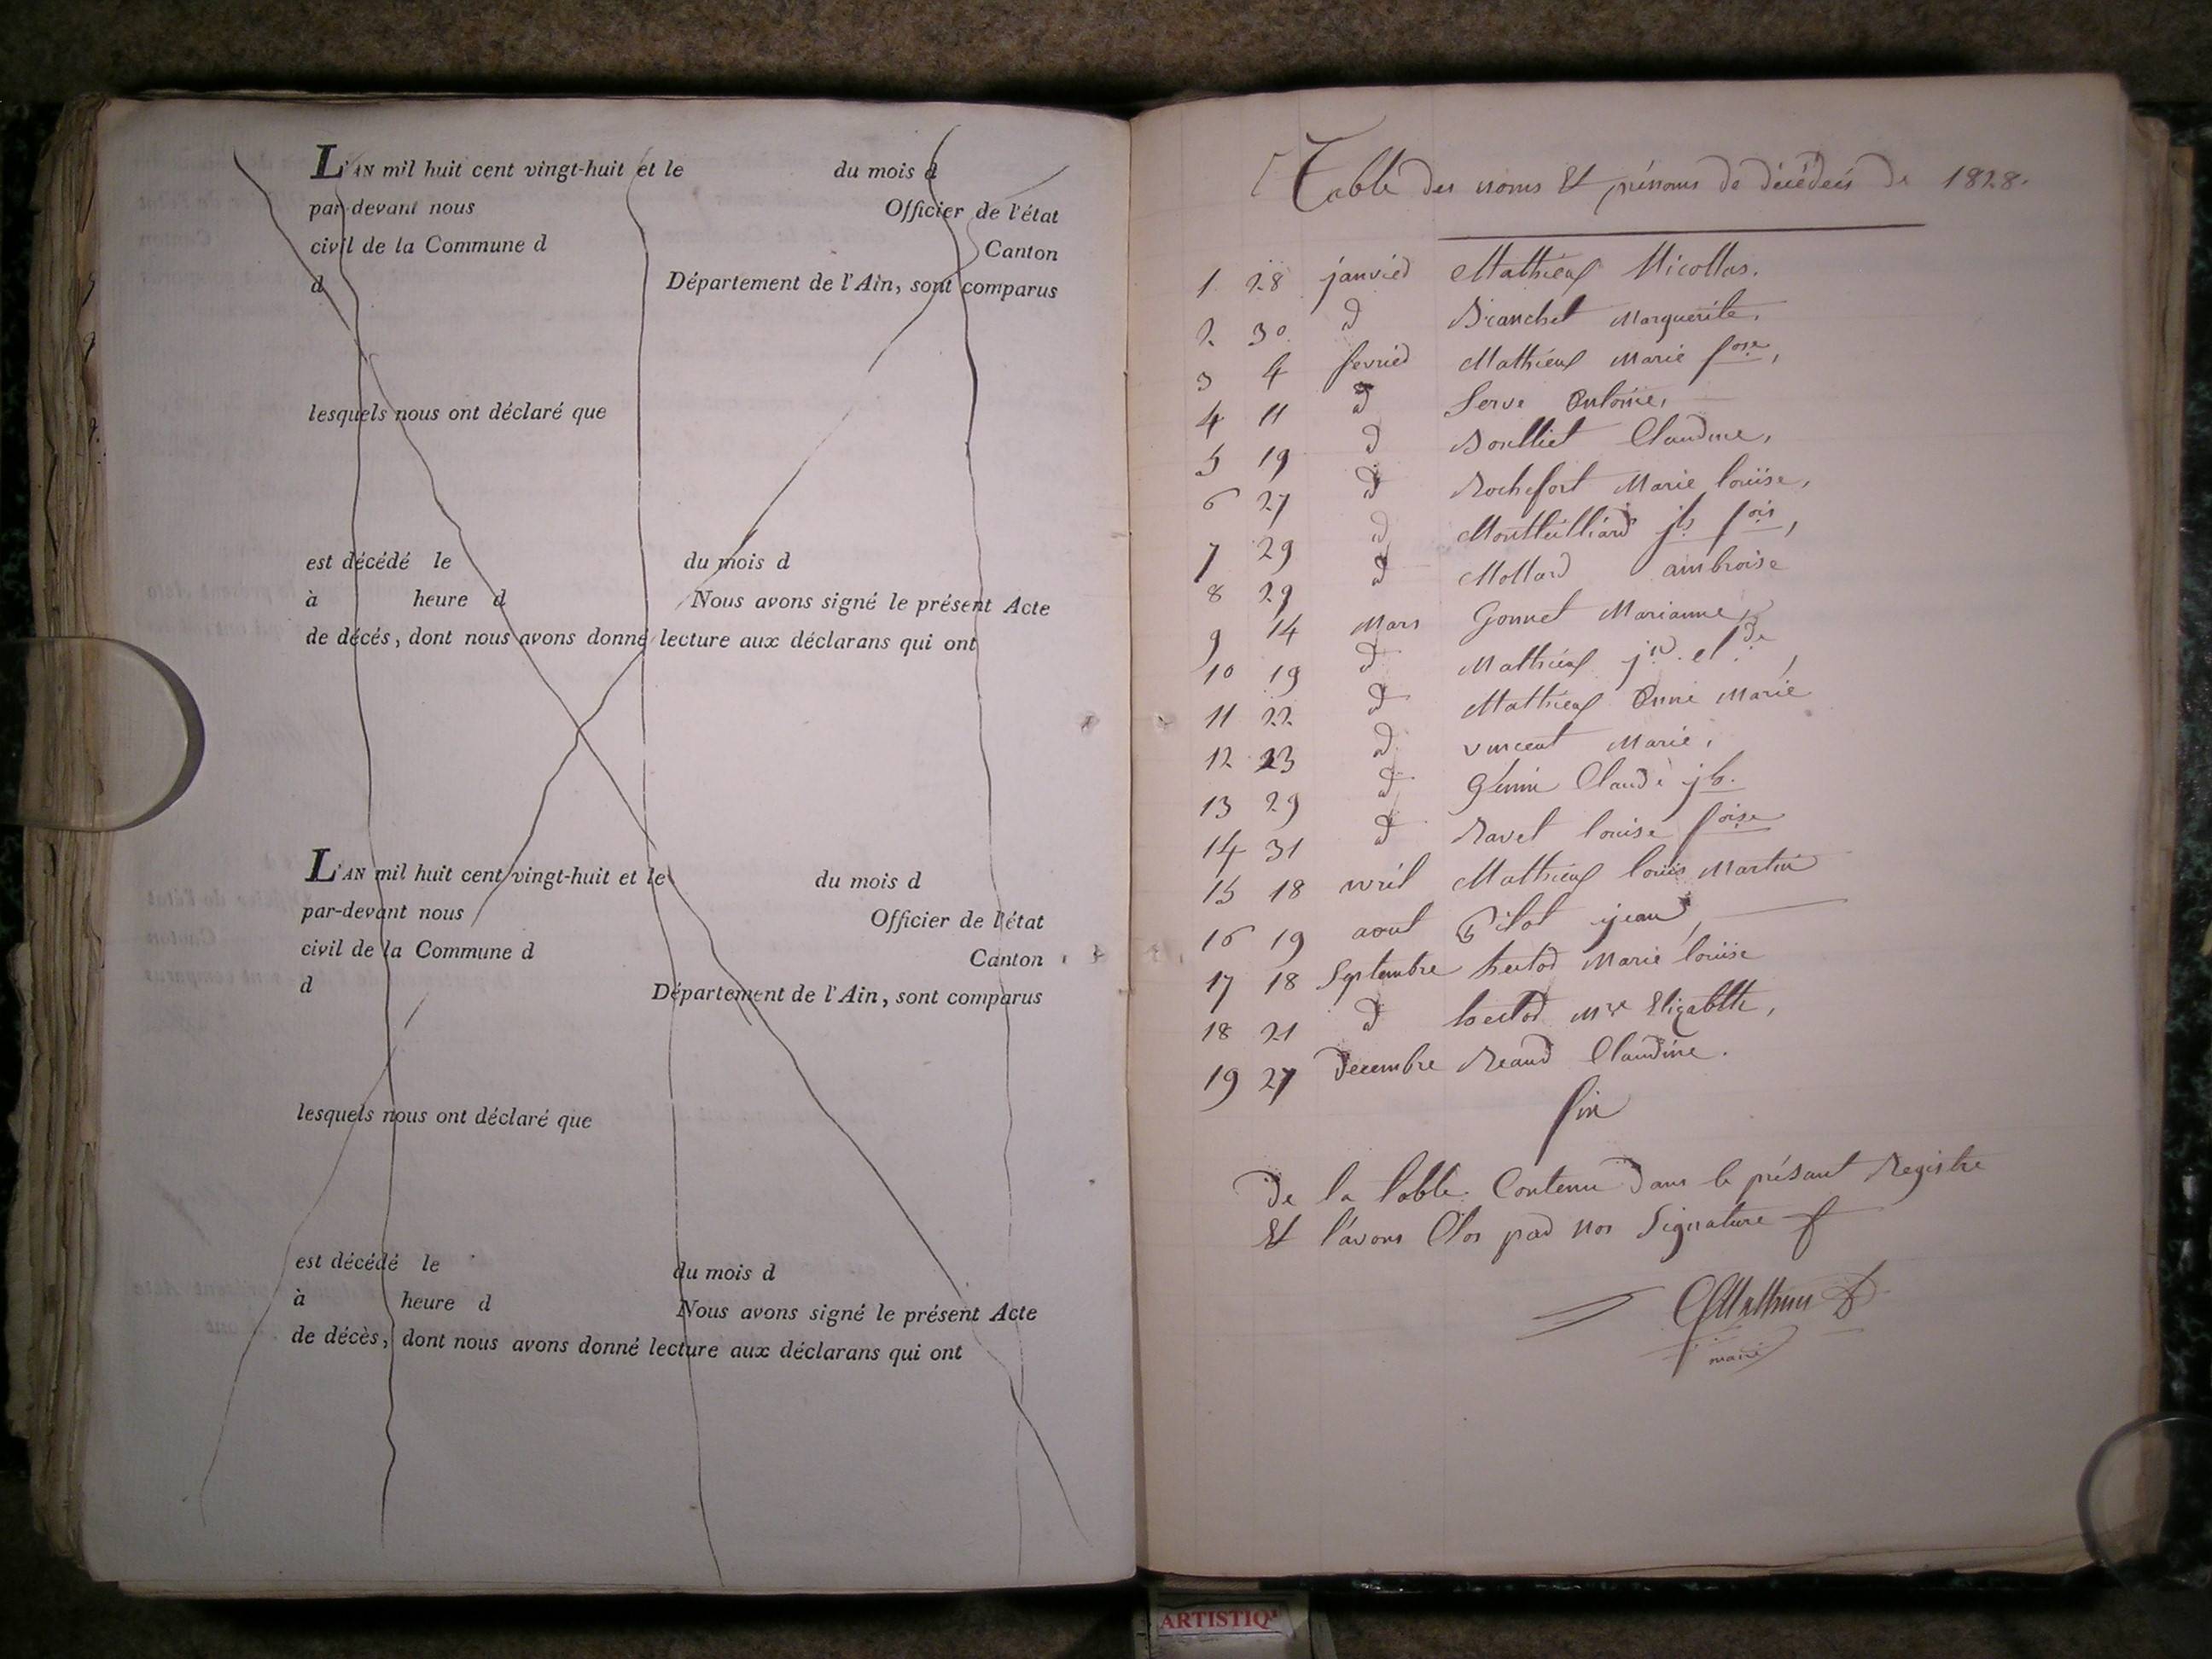 L'AN mil huit cent vingt-huit et le du mois d
par-devant nous Officier de l'état
civil de la Commune d Canton
d Département de l'Ain, sont comparus
lesquels nous ont déclaré que
est décédé le du mois d
à heure d Nous avons signé le présent Acte
de décés, dont nous avons donné lecture aux déclarans qui ont
L'AN mil huit cent vingt-huit et le du mois d
par-devant nous Officier de l'état
civil de la Commune d Canton
d Département de l'Ain, sont comparus
lesquels nous ont déclaré que
est décédé le du mois d
à heure d Nous avons signé le présent Acte
de décès, dont nous avons donné lecture aux déclarans qui ont
Table des noms Et prénoms de décédés de 1828.
1 28 janvier Mathieux Nicollas.
2 30 d Marguerite,
3 4 fevrier Mathieux Marie foise,
4 11 d Serve Antoine,
5 19 d Claudine,
6 27 d Rochefort Marie louise,
7 29 d jh fois,
8 29 d Mollard ambroise
9 14 Mars Gonnet Marianne,
10 19 d Mathieux
11 22 d Mathieux Anne Marie
12 23 d vincent Marie,
13 29 d Genin Claude jh.
14 31 d Ravet louise foise
15 18 avril Mathieux louis Martin
16 19 aout Pilot jean,
17 18 Septembre Marie louise
18 21 d Mie Elizabeth,
19 27 decembre Reaud Claudine.
fin
de la table Contenu dans le présant Registre
Et l'avons Clos par nos Signature
Mathieux
maire
ARTISTIQ